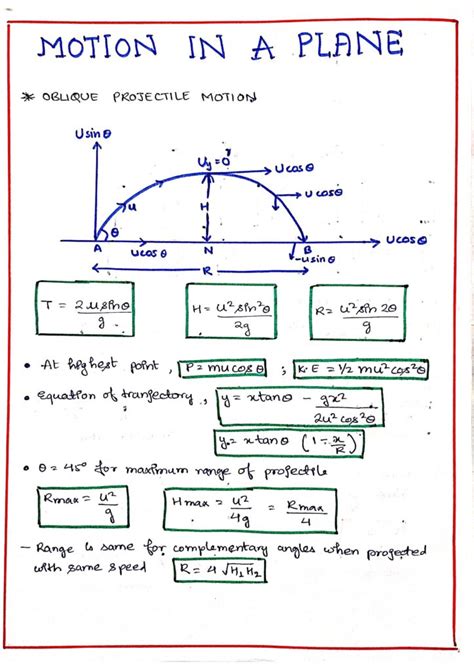 MOTION IN A PLANE
* OBLIQUE PROJECTILE MOTION
Usinθ
Uy=0
Ucosθ
Ucosθ
u
H
θ
A
Ucosθ
N
B
Ucosθ
-usinθ
R
T = 2usinθ/g
H = u²sin²θ/2g
R = u²sin2θ/g
• At highest point, P = mucosθ ; K.E = 1/2 mu²cos²θ
• Equation of tranjectory, y = xtanθ - gx²/2u²cos²θ
y = xtanθ (1 - x/R)
• θ = 45° for maximum range of projectile
Rmax = u²/g
Hmax = u²/4g = Rmax/4
- Range is same for complementary angles when projected
with same speed R = 4√H₁H₂